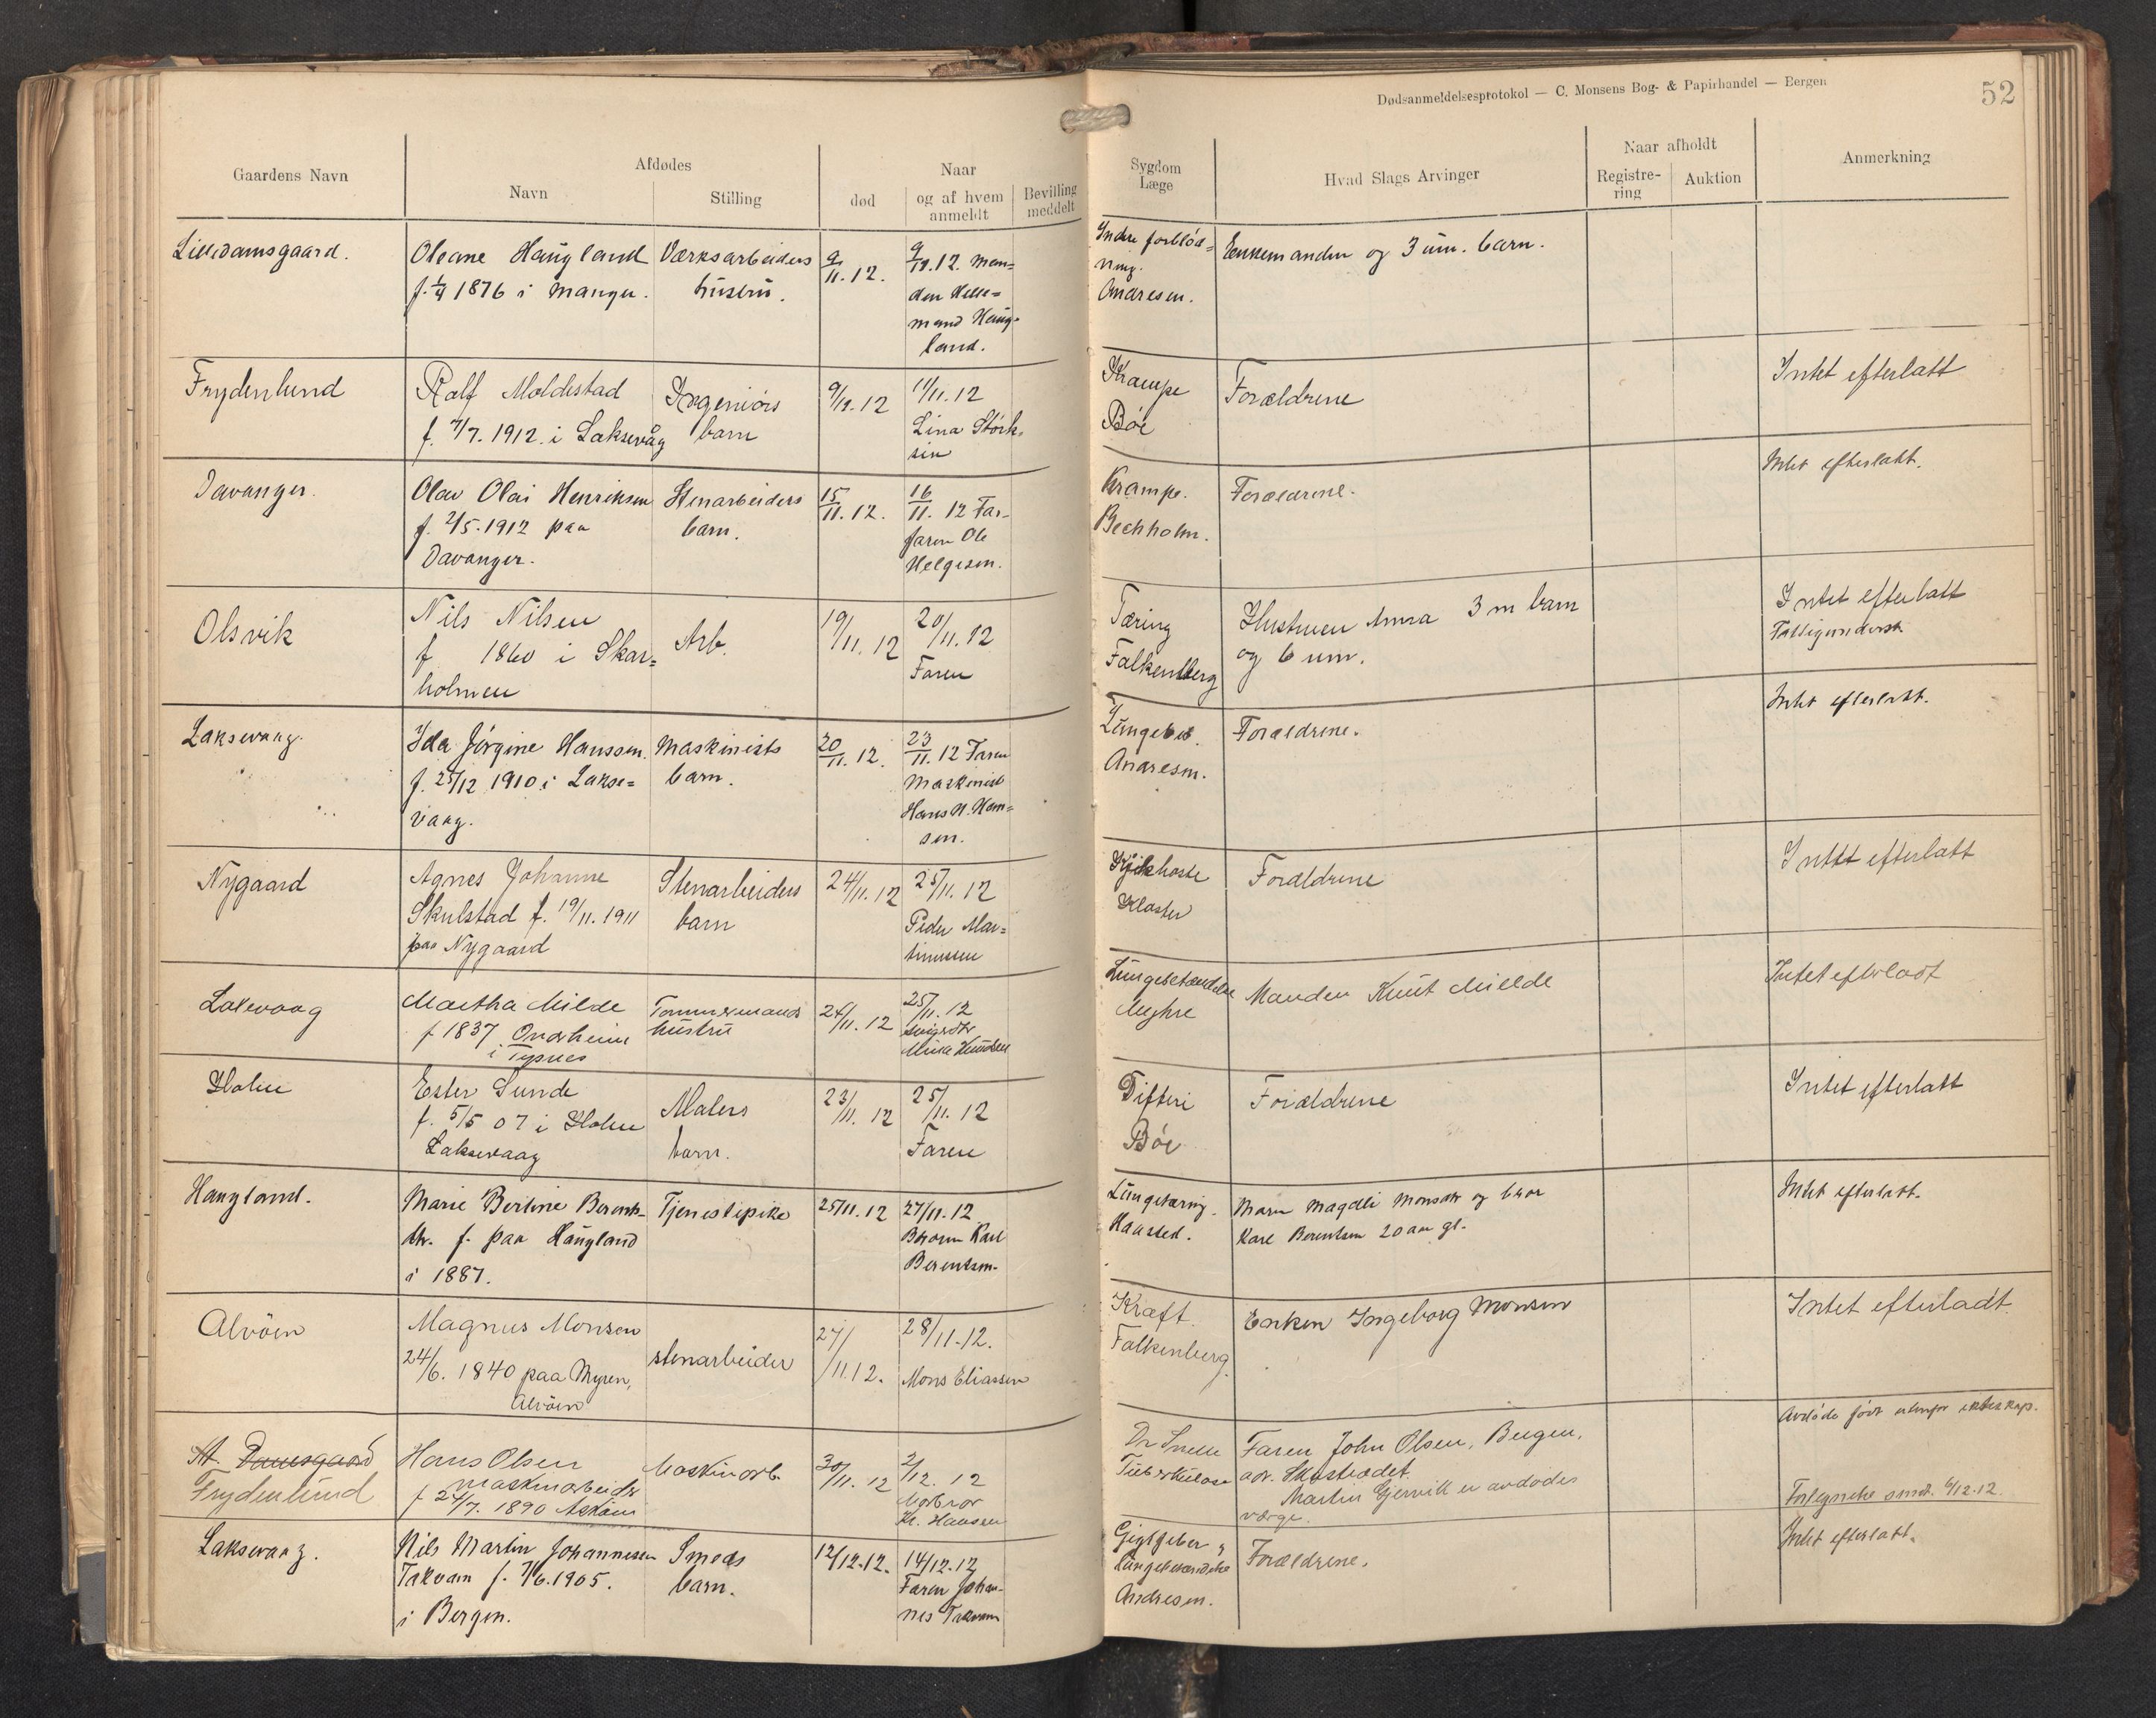 Dødsanmeldelsesprotokol — C. Monsens Bog- & Papirhandel — Bergen
52
Gaardens Navn
Afdødes
Navn
Stilling
død
Naar
og af hvem
anmeldt
Bevilling
meddelt
Sygdom
Læge
Hvad Slags Arvinger
Naar afholdt
Registre-
ring
Auktion
Anmerkning
Lilledamsgaard.
Oleane Haugland
f. 1876 i Manger.
Værksarbeiders
hustru.
9/11. 12.
9/11. 12. Man=
den Helle=
mand Haug=
land.
Indre forblød=
ning.
Andresen.
Enkemanden og 3 um. barn.
Frydenlund
Ralf Moldestad
f. 7/7. 1912. i Laksevåg
Ingeniørs
barn
9/11. 12
11/11. 12
Lina Størk-
sen
Krampe
Bøe
Forældrene
Intet efterlatt
Davanger.
Olav Olai Henriksen
f. 2/5. 1912 paa
Davanger.
Stenarbeiders
barn.
15/11. 12.
16/11. 12 Far-
faren Ole
Helgesen.
Krampe.
Bechholm.
Forældrene.
Intet efterlatt.
Olsvik
Nils Nilsen
f 1860 i Skar=
holmen
Arb.
19/11. 12
20/11. 12
Faren
Tæring
Falkenberg
Hustruen Anna 3 m barn
og 6 um.
Intet efterlatt
Fattigunderst
Laksevaag.
Ida Jørgine Hanssen.
f. 25/12 1910 i Lakse=
vaag.
Maskinists
barn.
20/11. 12.
23/11. 12 Faren
Maskinist
Hans H. Han=
sen.
Lungebet.
Andresen.
Forældrene.
Intet efterlatt.
Nygaard
Agnes Johanne
Skulstad f. 19/11. 1911
paa Nygaard
Stenarbeiders
barn
24/11. 12
25/11. 12
Peder Mar=
tinussen
Kikhoste
Kloster
Forældrene
Intet efterlatt
Laksevaag
Martha Milde
f 1837 Onarheim
i Tysnes
Tømmermands
hustru
24/11. 12
25/11. 12
Mina Knudsen
Lungebetændelse
Myhre
Manden Knut Milde
Intet efterladt
Holen
Ester Sunde
f. 5/5 07 i Holen
Laksevaag
Malers
barn.
23/11. 12
25/11. 12
Faren
Difteri
Bøe
Forældrene
Intet efterlatt
Haugland.
Marie Bertine Berents-
dtr. f. paa Haugland
i 1887.
Tjenestepike
25/11. 12
27/11. 12.
Broren Karl
Berentsen.
Lungetæring.
Kaasted.
Moren Magdli Monsdtr og bror
Karl Berentsen 20 aar gl.
Intet efterlatt.
Alvøen
Magnus Monsen
24/6. 1840 paa Myren,
Alvøen
stenarbeider
27/11. 12.
28/11. 12.
Mons Eliassen
Kræft.
Falkenberg.
Enken Ingeborg Monsen
Intet efterladt.
St. Damsgaard
Frydenlund
Hans Olsen
maskinarbeider
f 24/7. 1890 Askøen
Maskinarb.
30/11. 12
2/12. 12
Morbror
Kr. Hanssen
Dr Snelle
Tuberkulose
Faren John Olsen, Bergen,
adr. Skostrædet.
Martin Gjervik er avdødes
værge.
Avdøde født utenfor ekteskap.
6/12. 12.
Laksevaag.
Nils Martin Johannessen
Takvam f. 7/6. 1905.
i Bergen.
Smeds
barn.
12/12. 12.
14/12. 12
Faren Johan-
nes Takvam
Gigtfeber og
Lungebetændelse
Andresen.
Forældrene.
Intet efterlatt.